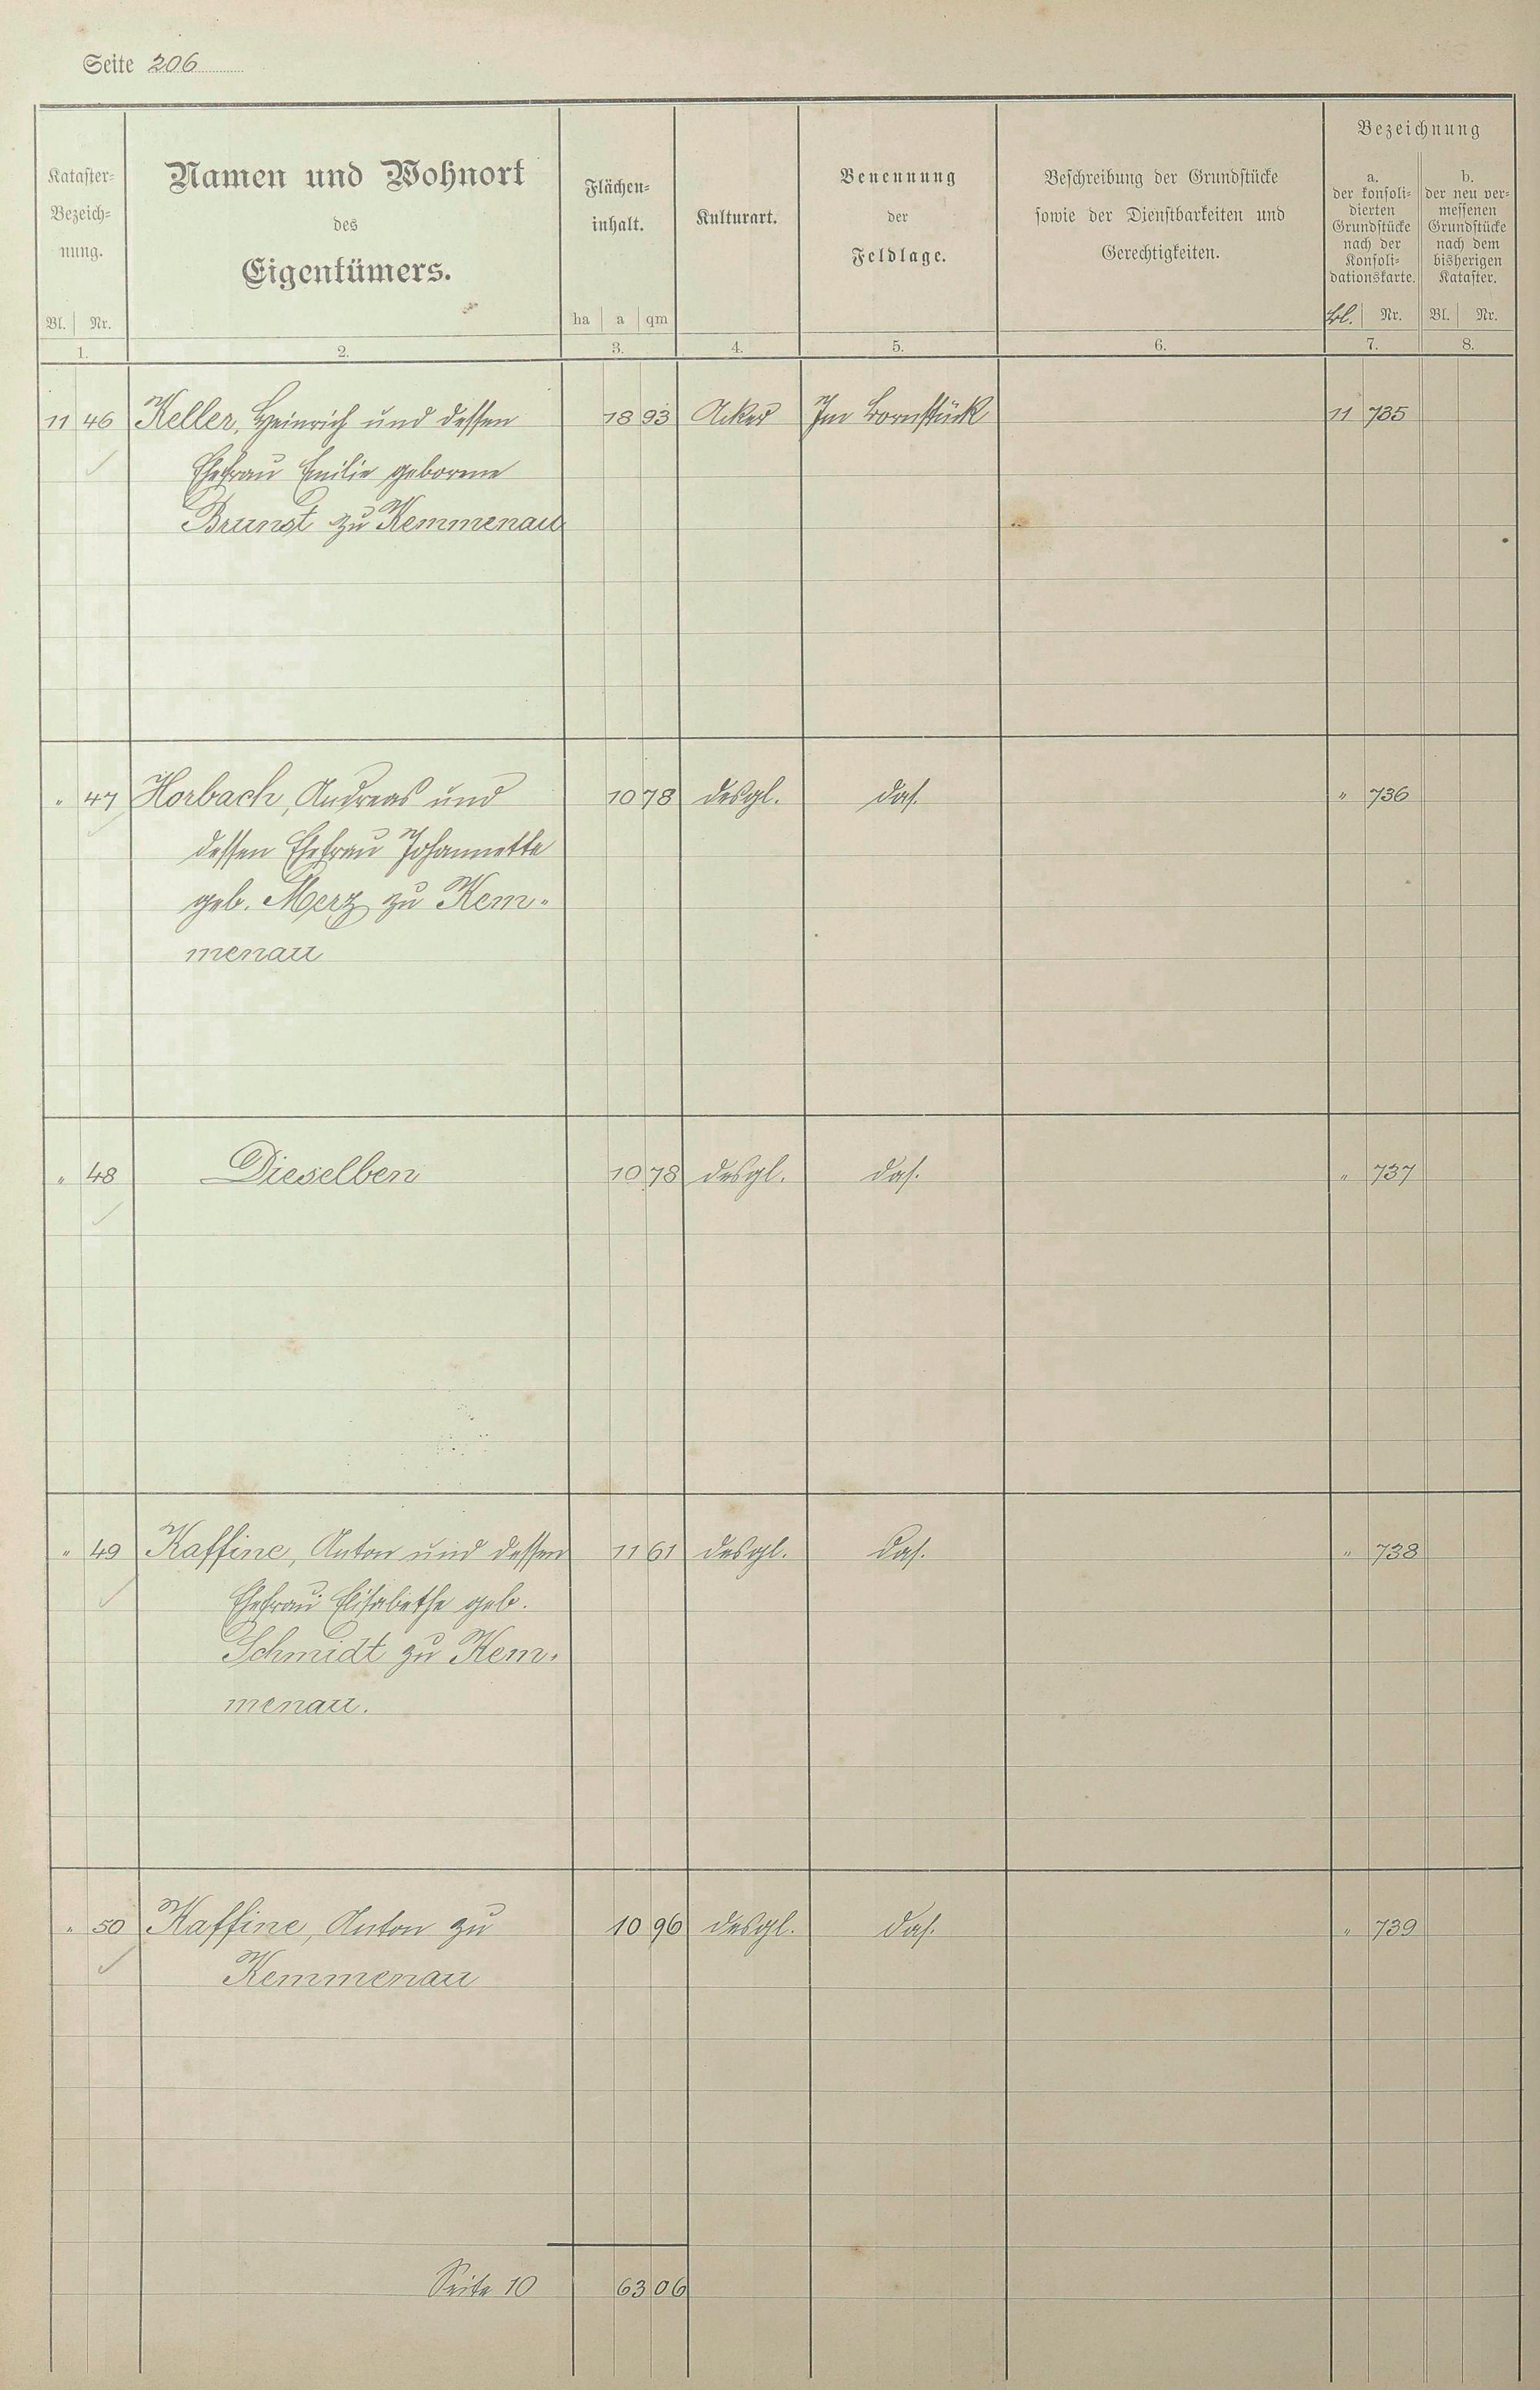 Seite 206
Kataster-
Bezeich-
nung.
Bl. Nr.
1.
Namen und Wohnort
des
Eigentümers.
2.
Flächen-
inhalt.
ha a qm
3.
Kulturart.
4.
Benennung
der
Feldlage.
5.
Beschreibung der Grundstücke
sowie der Dienstbarkeiten und
Gerechtigkeiten.
6.
Bezeichnung
a.
der konsoli-
dierten
Grundstücke
nach der
Konsoli-
dationskarte.
Bl. Nr.
7.
b.
der neu ver-
messenen
Grundstücke
nach dem
bisherigen
Kataster.
Bl. Nr.
8.
11 46 Keller, Heinrich und dessen 18 93 Acker Im Bornstück 11 735
Ehefrau Emilie geborene
Brunst zu Kemmenau
" 47 Horbach, Andreas und 10 78 desgl. das. " 736
dessen Ehefrau Johannette
geb. Merz zu Kem-
menau
" 48 Dieselben 10 78 desgl. das. " 737
" 49 Kaffine, Anton und dessen 11 61 desgl. das. " 738
Ehefrau Elisabethe geb.
Schmidt zu Kem-
menau.
" 50 Kaffine, Anton zu 10 96 desgl. das. " 739
Kemmenau
Seite 10 63 06